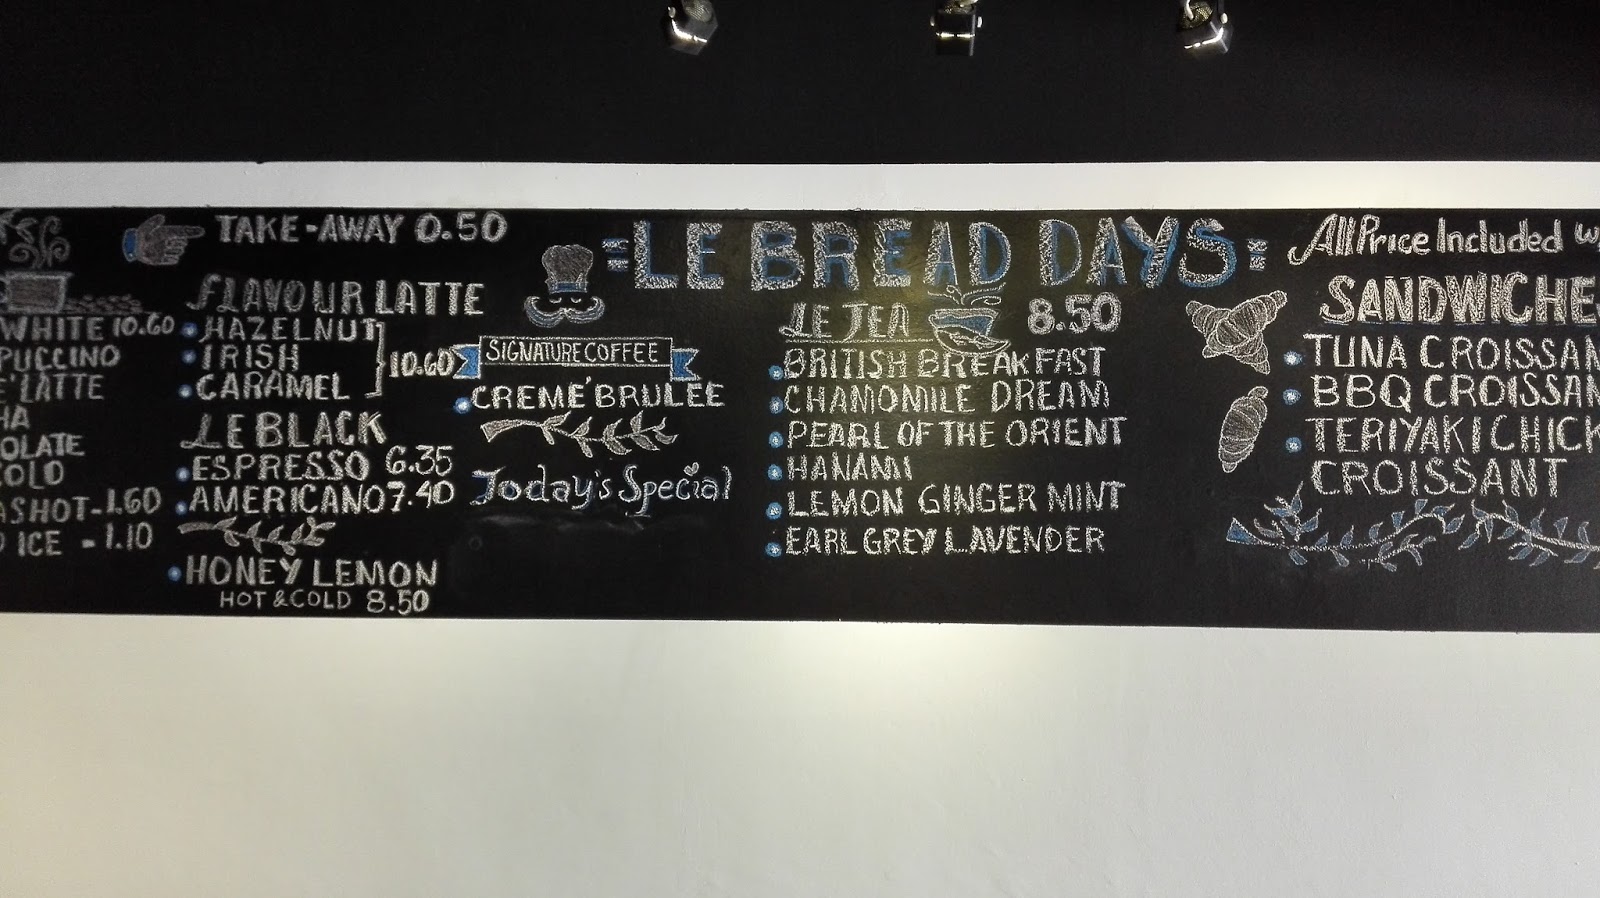 TAKE-AWAY 0.50
WHITE 10.60
PUCCINO
LATTE
HA
OLATE
COLD
ASHOT-1.60
ICE -1.10
FLAVOUR LATTE
HAZELNUT
IRISH
CARAMEL
10.60
LE BLACK
ESPRESSO 6.35
AMERICANO 7.40
HONEY LEMON
HOT & COLD 8.50
SIGNATURE COFFEE
CREMÉ BRULEE
Today's Special
LE BREAD DAYS
LE TEA 8.50
BRITISH BREAKFAST
CHAMOMILE DREAM
PEARL OF THE ORIENT
HANAMI
LEMON GINGER MINT
EARL GREY LAVENDER
All Price Included w
SANDWICHE
TUNA CROISSAN
BBQ CROISSAN
TERIYAKI CHICK
CROISSANT